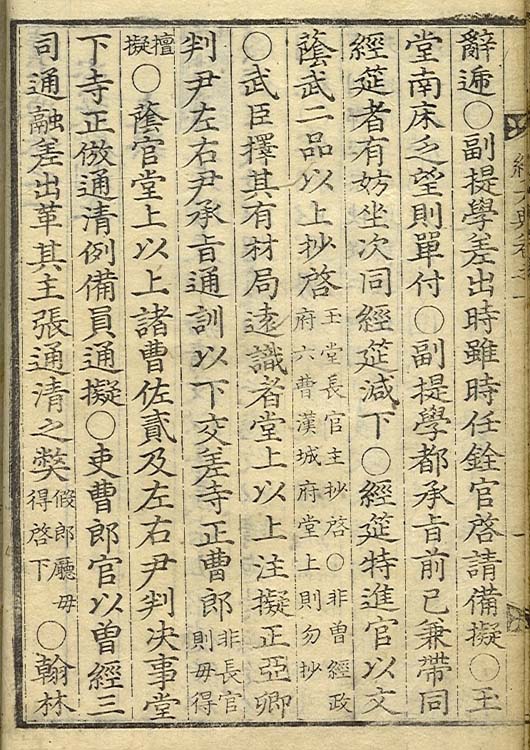 辭遞〇副提學差出時雖時任銓官啓請備擬〇玉
堂南床乏望則單付〇副提學都承旨前已兼帶同
經筵者有妨坐次同經筵減下〇經筵特進官以文
蔭武二品以上抄啓玉堂長官主抄啓〇非曾經政府六曹漢城府堂上則勿抄
〇武臣擇其有材局遠識者堂上以上注擬正亞卿
判尹左右尹承旨通訓以下交差寺正曹郎非長官則毋得
擅擬〇蔭官堂上以上諸曹佐貳及左右尹判决事堂
下寺正倣通清例備員通擬〇吏曹郎官以曾經三
司通融差出革其主張通清之弊假郎廳毋得啓下〇翰林